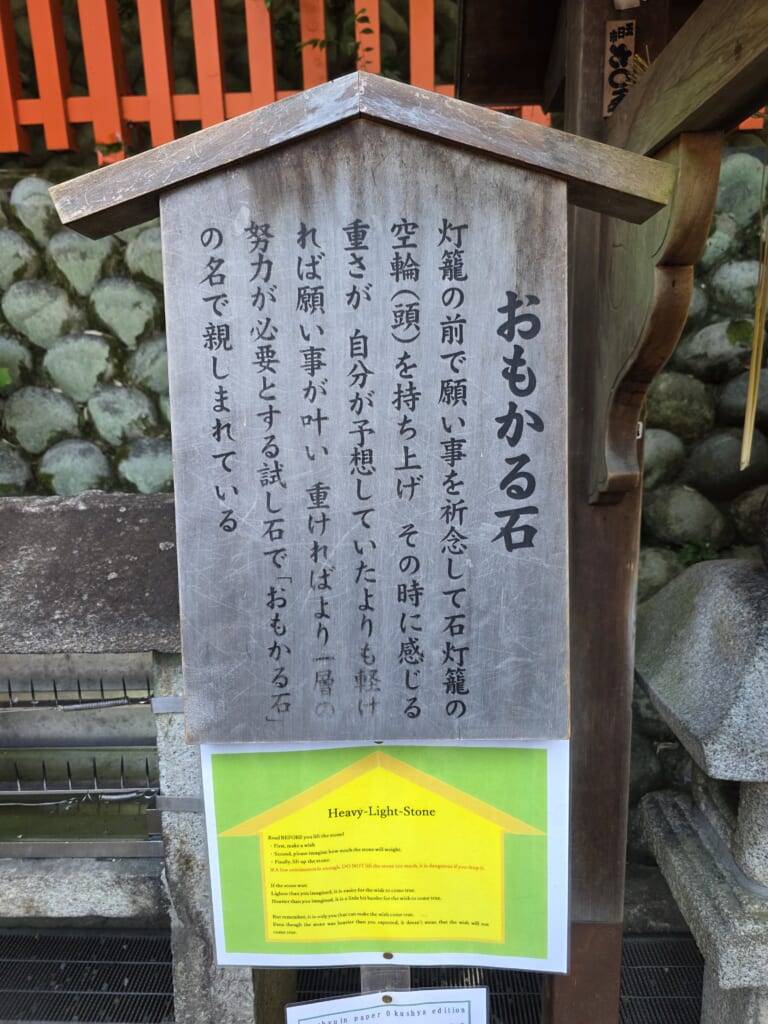 おもかる石
灯籠の前で願い事を祈念して石灯籠の
空輪(頭)を持ち上げ その時に感じる
重さが 自分が予想していたよりも軽け
れば願い事が叶い 重ければより一層の
努力が必要とする試し石で「おもかる石」
の名で親しまれている
Heavy-Light-Stone
Read BEFORE you lift the stone!
・First, make a wish
・Second, please imagine how much the stone will weight.
・Finally, lift up the stone.
※A few centimeters is enough. DO NOT lift the stone too much, it is dangerous if you drop it.
If the stone was:
Lighter than you imagined, it is easier for the wish to come true.
Heavier than you imagined, it is a little bit harder for the wish to come true.
But remember, it is only you that can make the wish come true.
Even though the stone was heavier than you expected, it doesn't mean that the wish will not
come true.
in paper
edition